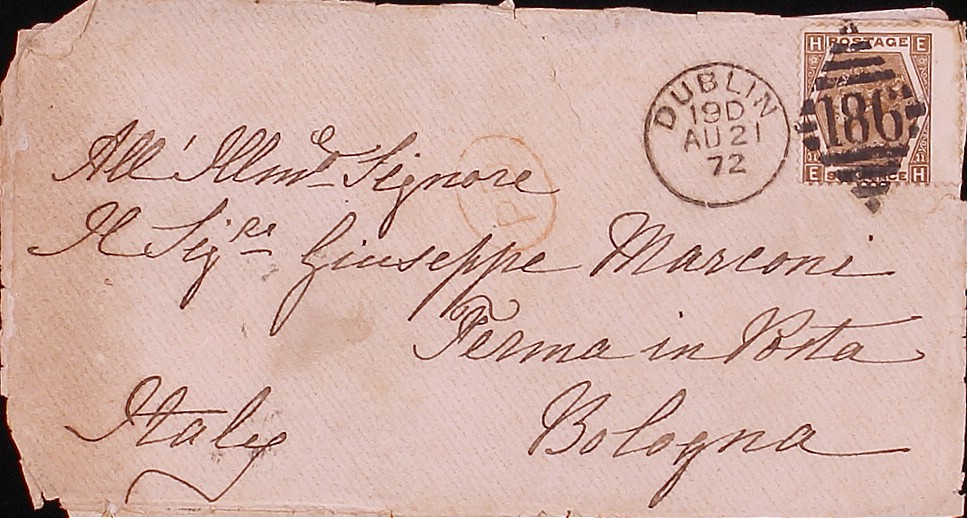 DUBLIN
19D
AU 21
72
H POSTAGE E
186
E SIX PENCE H
All' Illmo. Signore
Il Sigre. Giuseppe Marconi
Ferma in Posta
Bologna
Italy